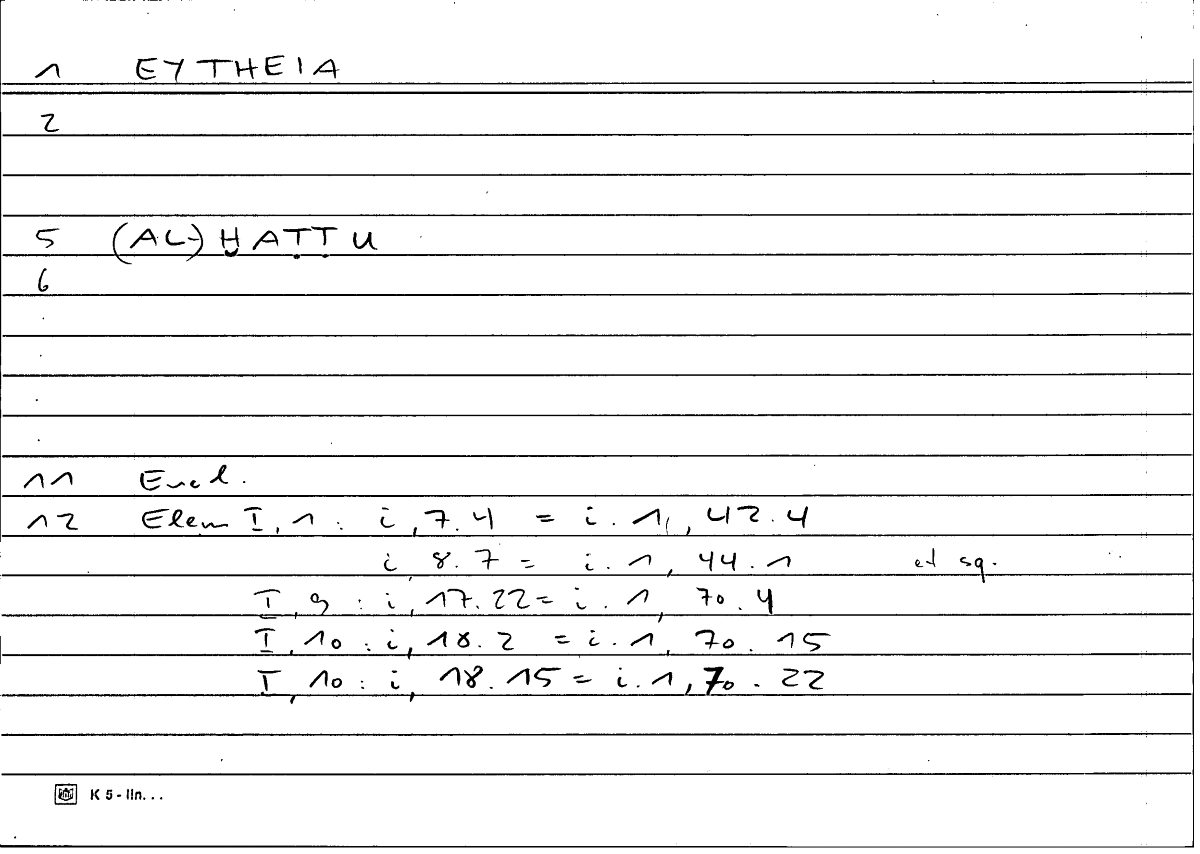 1 EYTHEIA
2
5 (AL-)ḪAṬṬU
6
.
.
.
.
11 Eucl.
12 Elem I, 1 : i, 7.4 = i.1, 42.4
i, 8.7 = i.1, 44.1 et sq.
I, 9 : i, 17.22 = i.1, 70.4
I, 10 : i, 18.2 = i.1, 70.15
I, 10 : i, 18.15 = i.1, 70.22
K 5 - lin. . .